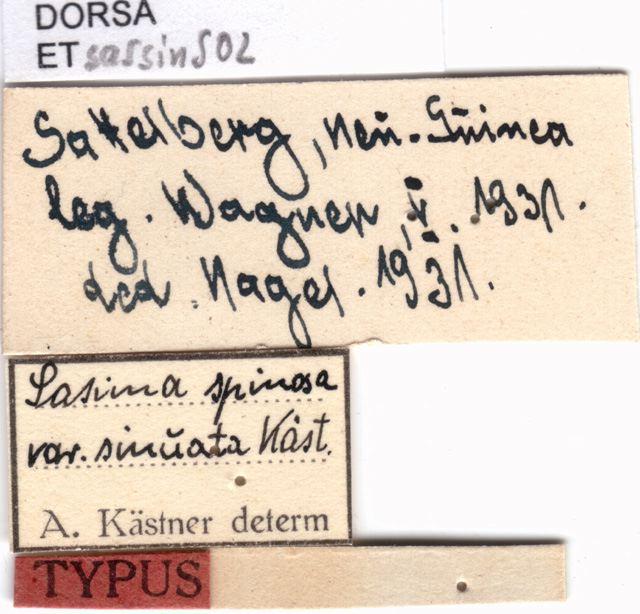 DORSA
ET sassinS02
Sattelberg, Neu-Guinea
leg. Wagner, V. 1931.
ded. Nagel. 1931.
Sasima spinosa
var. sinuata Käst.
A. Kästner determ
TYPUS